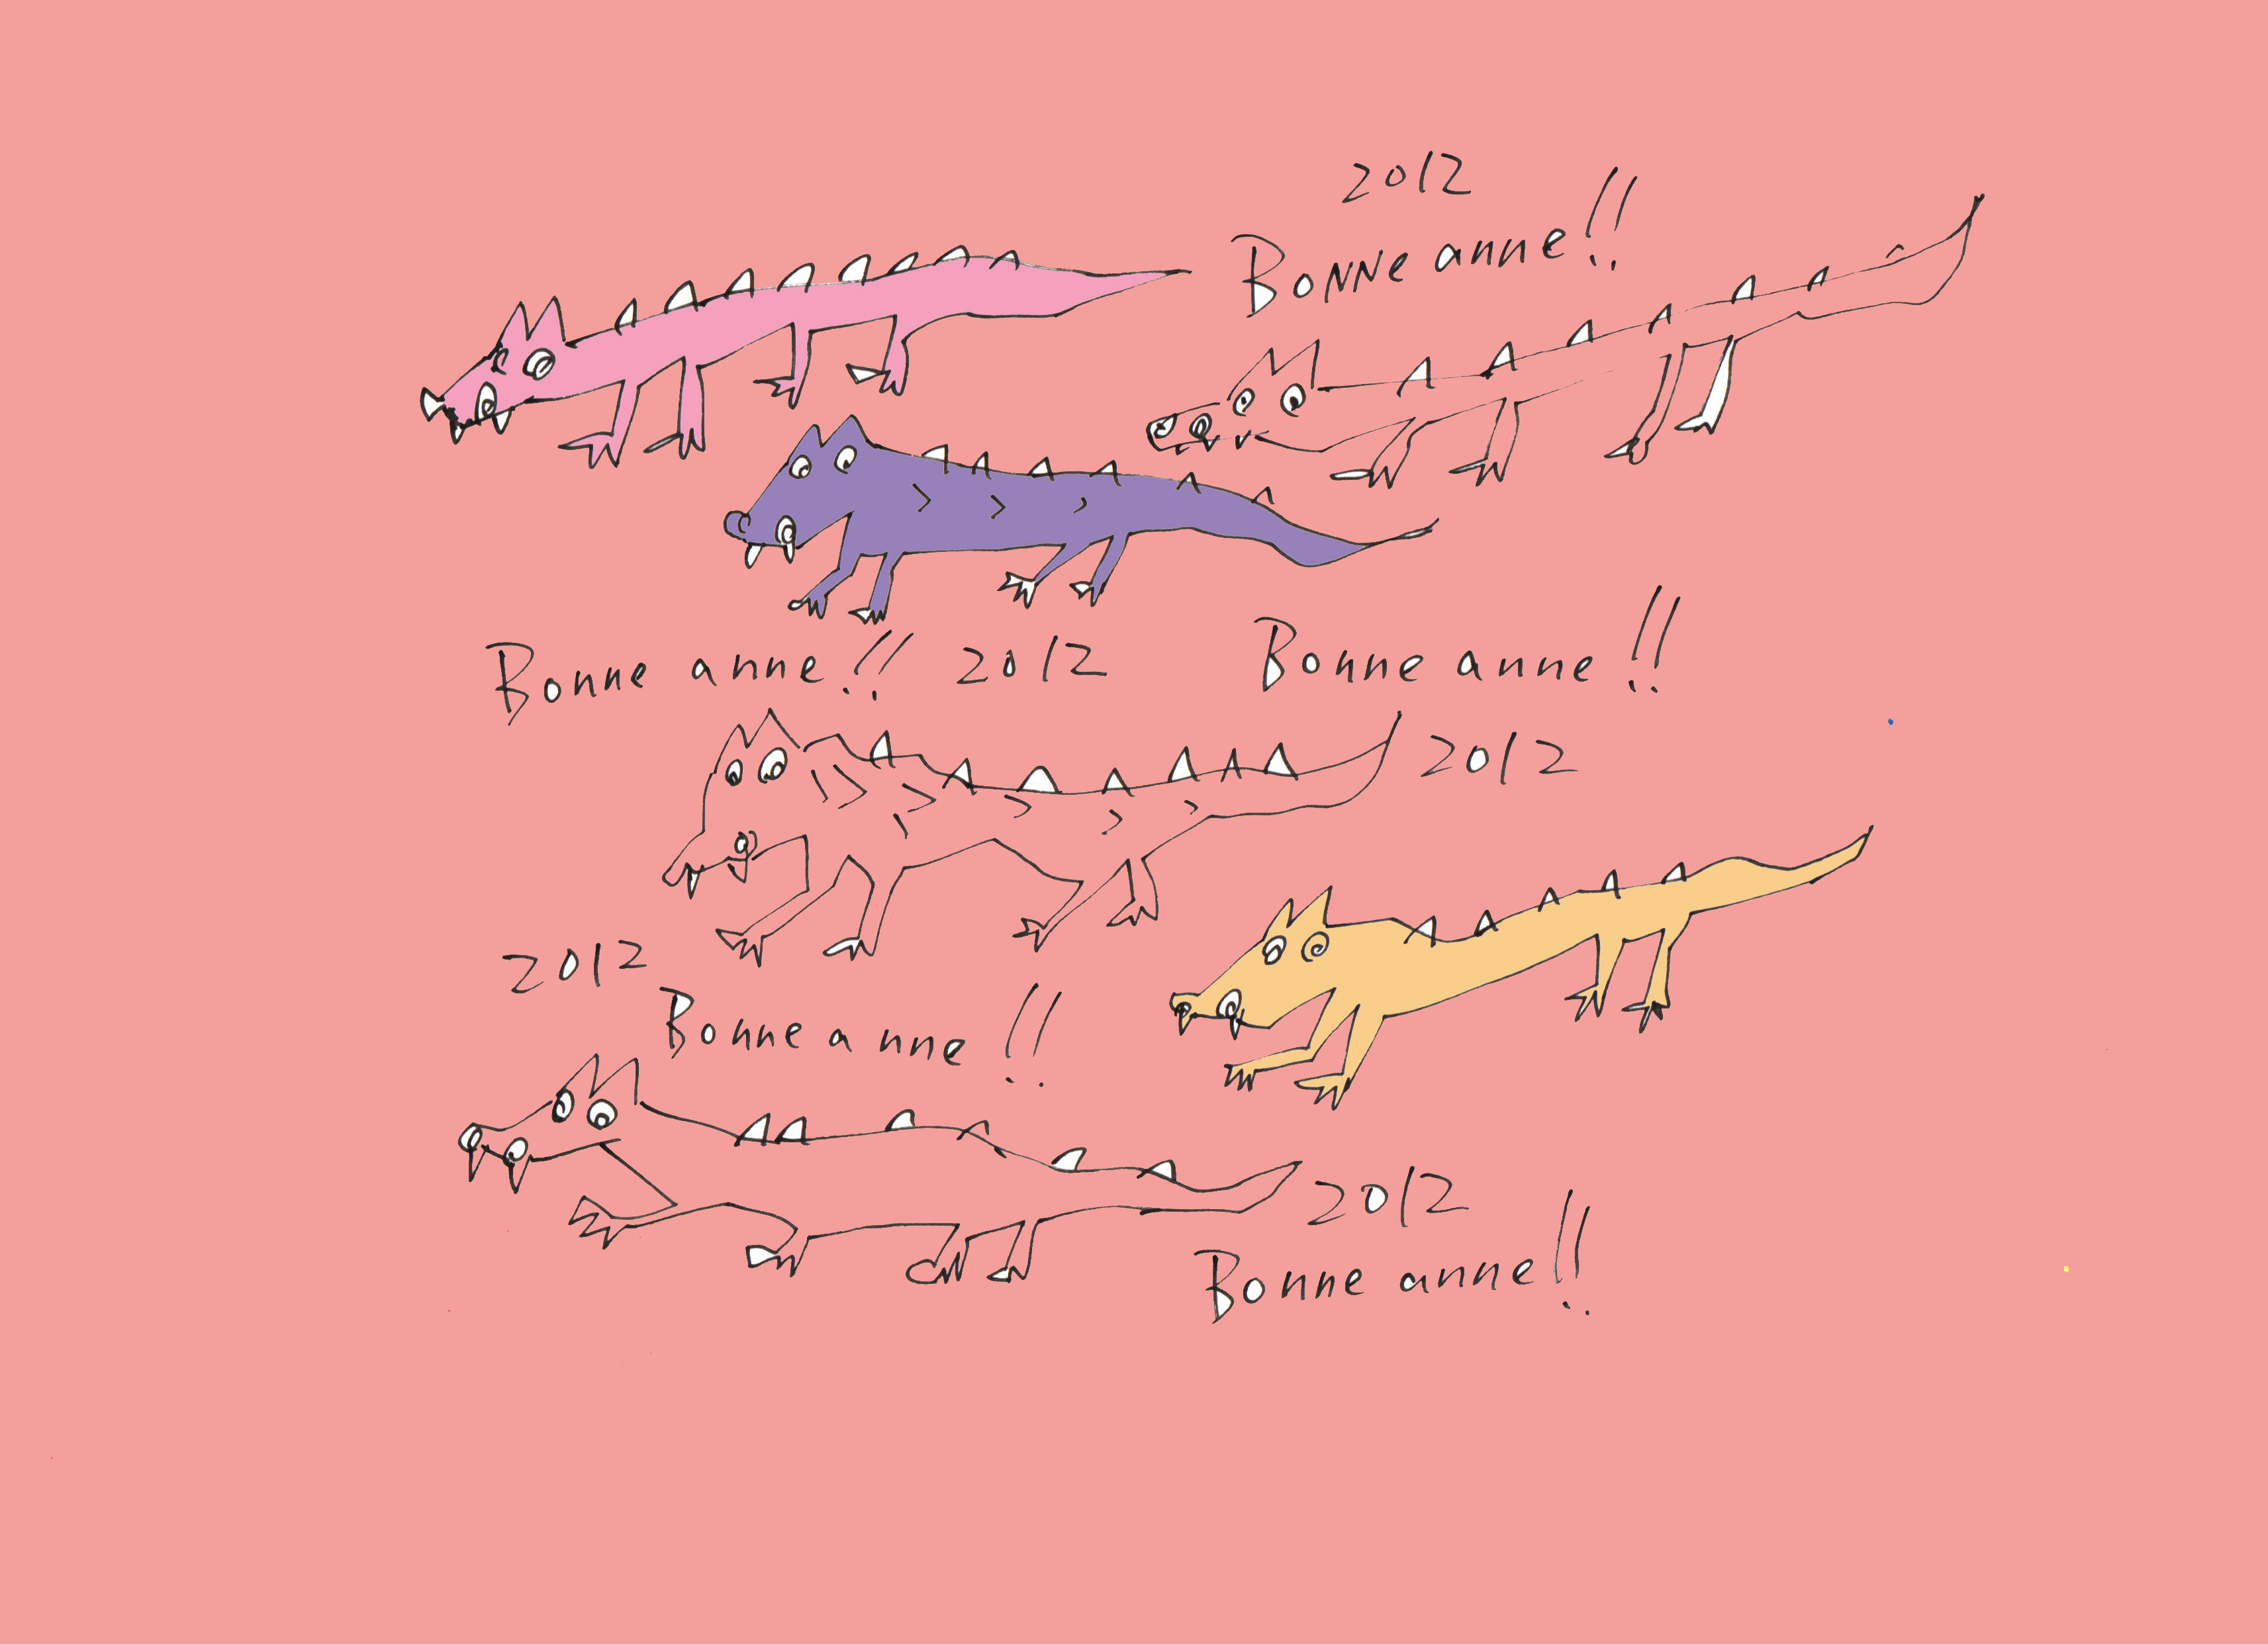 2012
Bonne anne!!
Bonne anne!! 2012
Bonne anne!!
2012
2012
Bonne anne!!
2012
Bonne anne!!